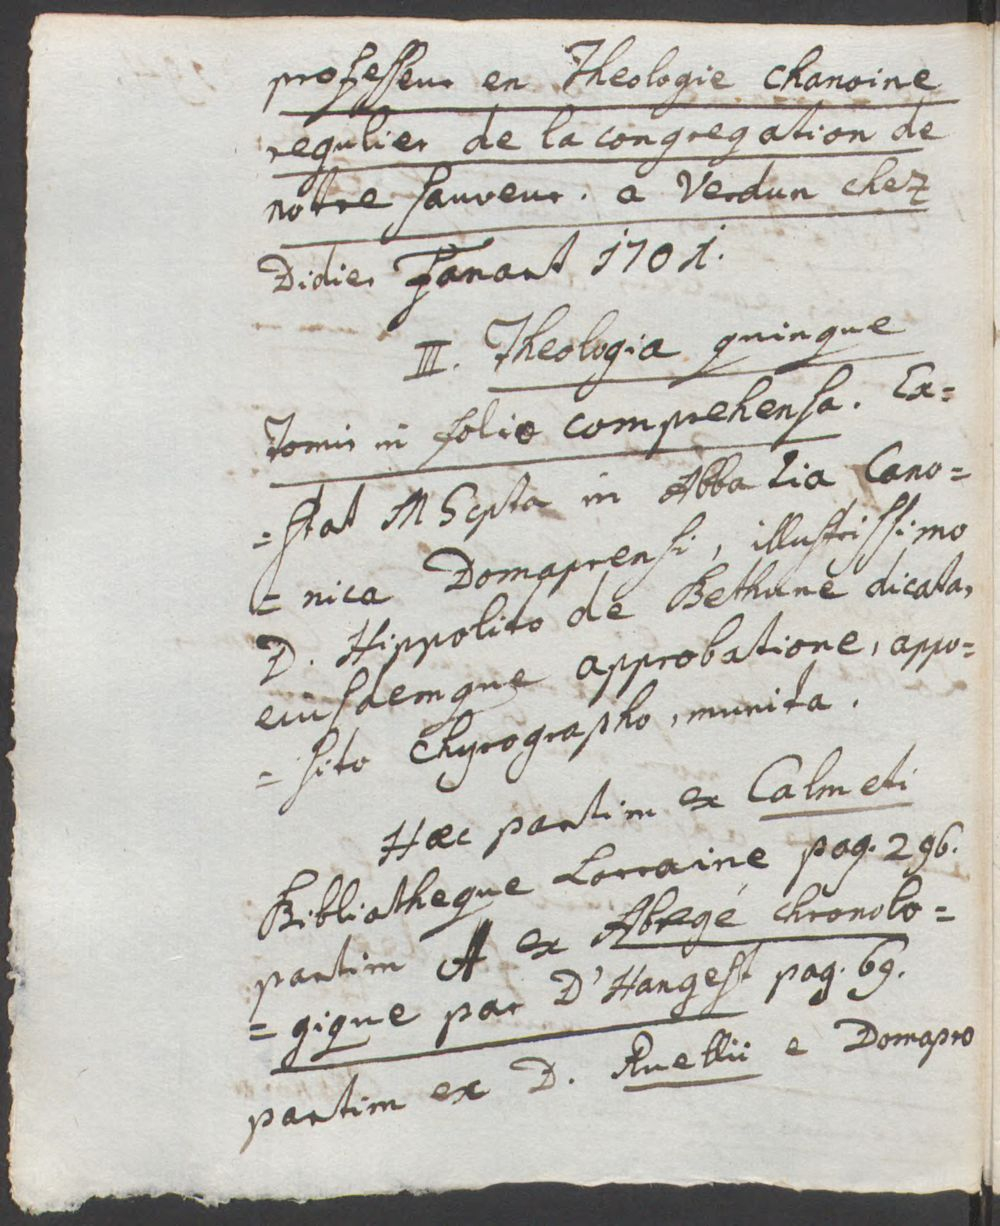 professeur en Theologie chanoine
regulier de la congregation de
notre sauveur. a Verdun chez
Didier Fanart 1701.
III. Theologia quinque
Tomis in folio comprehensa. Ex=
=stat MScpta in Abbatia Cano=
=nica Domaprensi, illustrissimo
D. Hippolito de Bethune dicata,
eiusdemque approbatione, appo=
=sito chyrographo, munita.
Hæc partim ex Calmeti
Bibliatheque Lorraine pag. 296.
partim ex Abregé chronolo=
=gique par D'Hangest pag. 69.
partim ex D. Ruellii e Domapro